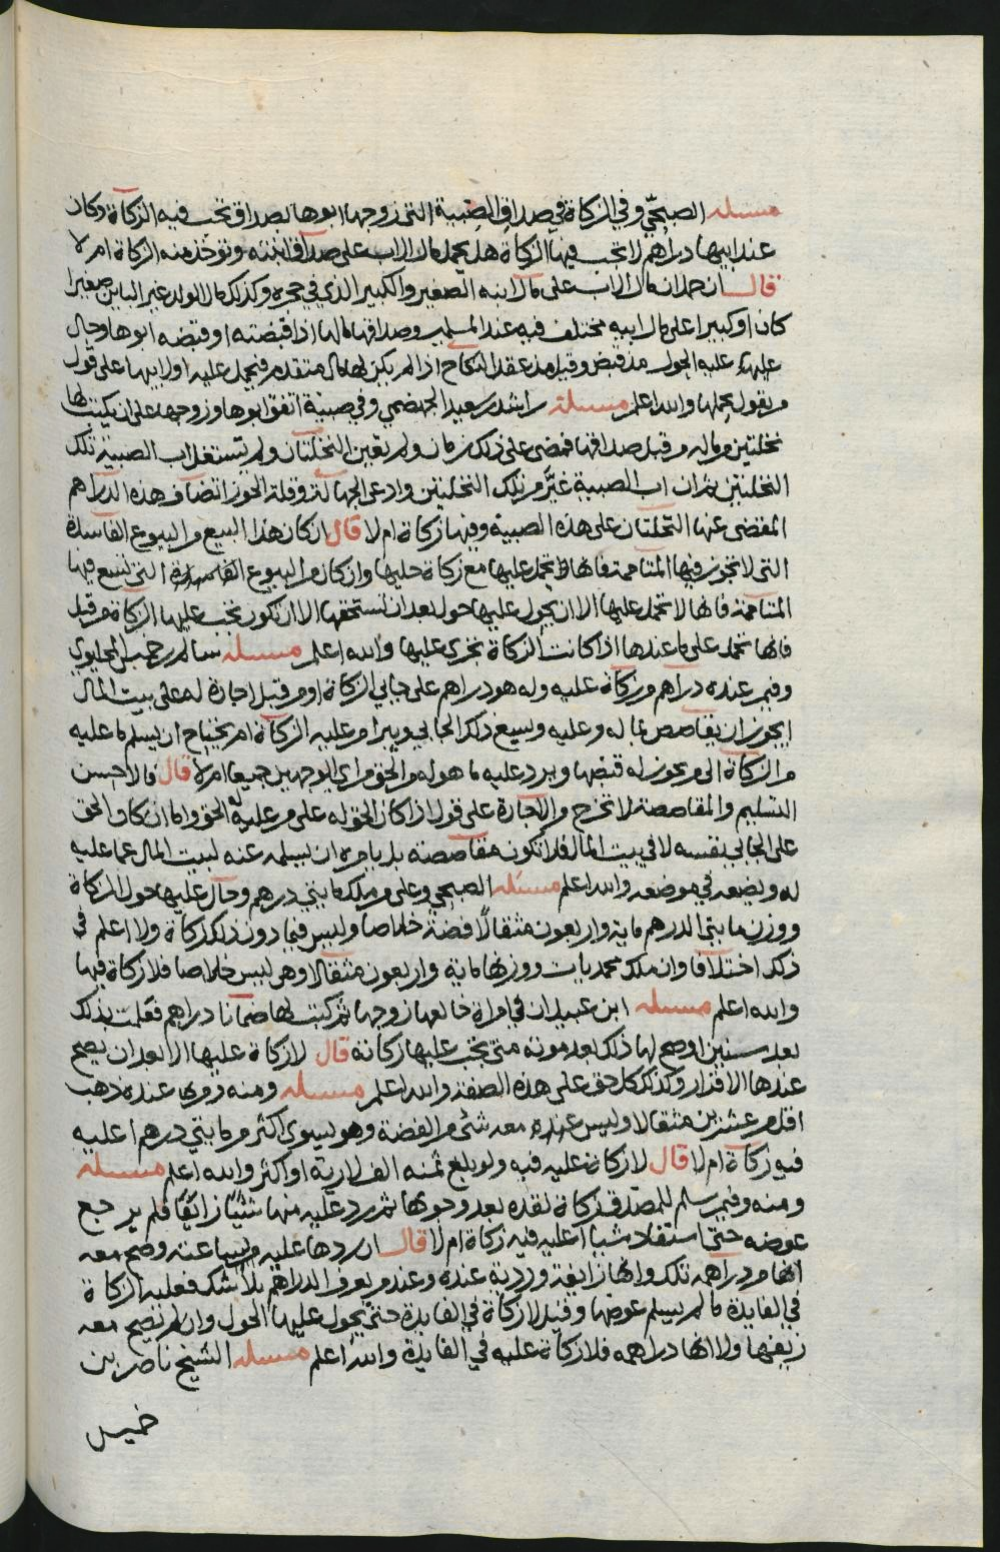 مسئلة الصبحي وفي الزكاة في صداق الصبية التي زوجها ابوها بصداق تجب فيه الزكاة وكان
عند ابيها دراهم لا تجب فيها الزكاة هل يحمل مال الاب على صداق ابنته وتؤخذ منه الزكاة ام لا
قال ان حملان مال الاب على مال ابنه الصغير والكبير الذي في حجره وكذلك مال الولد غير الباين صغيرا
كان او كبيرا على مال ابيه مختلف فيه عند المسلمين وصداقها مالها اذا قبضته او قبضه ابوها وحال
عليه الحول مذ قبض وقيل مذ عقد النكاح اذا لم يكن لها مال متقدم فيحمل عليه او لابيها على قول
من يقول بحملها والله اعلم مسئلة راشد بن سعيد الجهضمي وفي صبية اتفق ابوها وزوجها على ان يكتب لها
نخلتين من ماله من قبل صداقها فمضى على ذلك زمان ولم يقعين النخلتان ولم تستغل اب الصبية تلك
النخلتين ثم ان اب الصبية غيّر من تلك النخلتين وادعى الجهالة وقلة الحوز اتضاف هذه الدراهم
المقضى عنها النخلتان على هذه الصبية وفيها زكاة ام لا قال ان كان هذا البيع من البيوع الفاسدة
التي لا تجوز فيها المتاممة فانها تحمل عليها مع زكاة حليها وان كان من البيوع الفاسدة التي تسع فيها
المتاممة فانها لا تحمل عليها الا ان يحول عليها حول بعد ان تستحقها الا ان تكون تجب عليها الزكاة من قبل
فانها تحمل على ما عندها اذا كانت الزكاة تجري عليها والله اعلم مسئلة سالم بن خميس المحليوي
وفيمن عنده دراهم من زكاة عليه وله هو دراهم على جابي الزكاة او من قبل اجارة له على بيت المال
ايجوز ان يقاصص بما له وعليه وسيع ذلك الجابي ويبرا من عليه الزكاة ام يحتاج ان يسلم ما عليه
من الزكاة الى من يجوز له قبضها ويرد عليه ما هو له من الحق من اي الوجهين جميعا ام لا قال فالاحسن
التسليم والمقاصصة لا تخرج من الاجارة على قول اذا كان الحق له على من عليه له الحق واما ان كان الحق
على الجابي بنفسه لا في بيت المال فلا تكون مقاصصة بل يامره ان يسلمه عنه لبيت المال عما عليه
له ويضعه في موضعه والله اعلم مسئلة الصبحي وعلى من ملك مايتي درهم وحال عليها حول الزكاة
ووزن مايتي الدرهم ماية واربعون مثقالا فضة خلاصا وليس فيما دون ذلك زكاة ولا اعلم في
ذلك اختلافا وان ملك محمديات ووزنها ماية واربعون مثقالا وهي ليس خلاصا فلا زكاة فيها
والله اعلم مسئلة ابن عبيدان في امراة خالعها زوجها ثم كتب لها ضمانا دراهم فعلمت بذلك
بعد سنين او صح لها ذلك بعد موته متى تجب عليها زكاته قال لا زكاة عليها الا بعد ان يصح
عندها الاقرار وكذلك كل حق على هذه الصفة والله اعلم مسئلة ومنه ومن عنده ذهب
اقل من عشرين مثقالا وليس عنده معه شئ من الفضة وهو يسوى اكثر من مايتي درهم اعليه
فيه زكاة ام لا قال لا زكاة عليه فيه ولو بلغ ثمنه الف لارية او اكثر والله اعلم مسئلة
ومنه وفيمن سلم للمصدق زكاة نقده بعد وجوبها ثم رد عليه منها شئيا زائفا فلم يرجع
عوضه حتى استفاد شيا اعليه فيه زكاة ام لا قال ان ردها عليه من ساعته وصح معه
انها من دراهمه تلك وانها زايفة وردية عنده وعند من يعرف الدراهم بلا شك فعليه الزكاة
في الفايدة ما لم يسلم عوضها وقيل لا زكاة في الفايدة حتى يحول عليها الحول وان لم تصح معه
زيفها ولا انها دراهمه فلا زكاة عليه في الفايدة والله اعلم مسئلة الشيخ ناصر بن
خميس